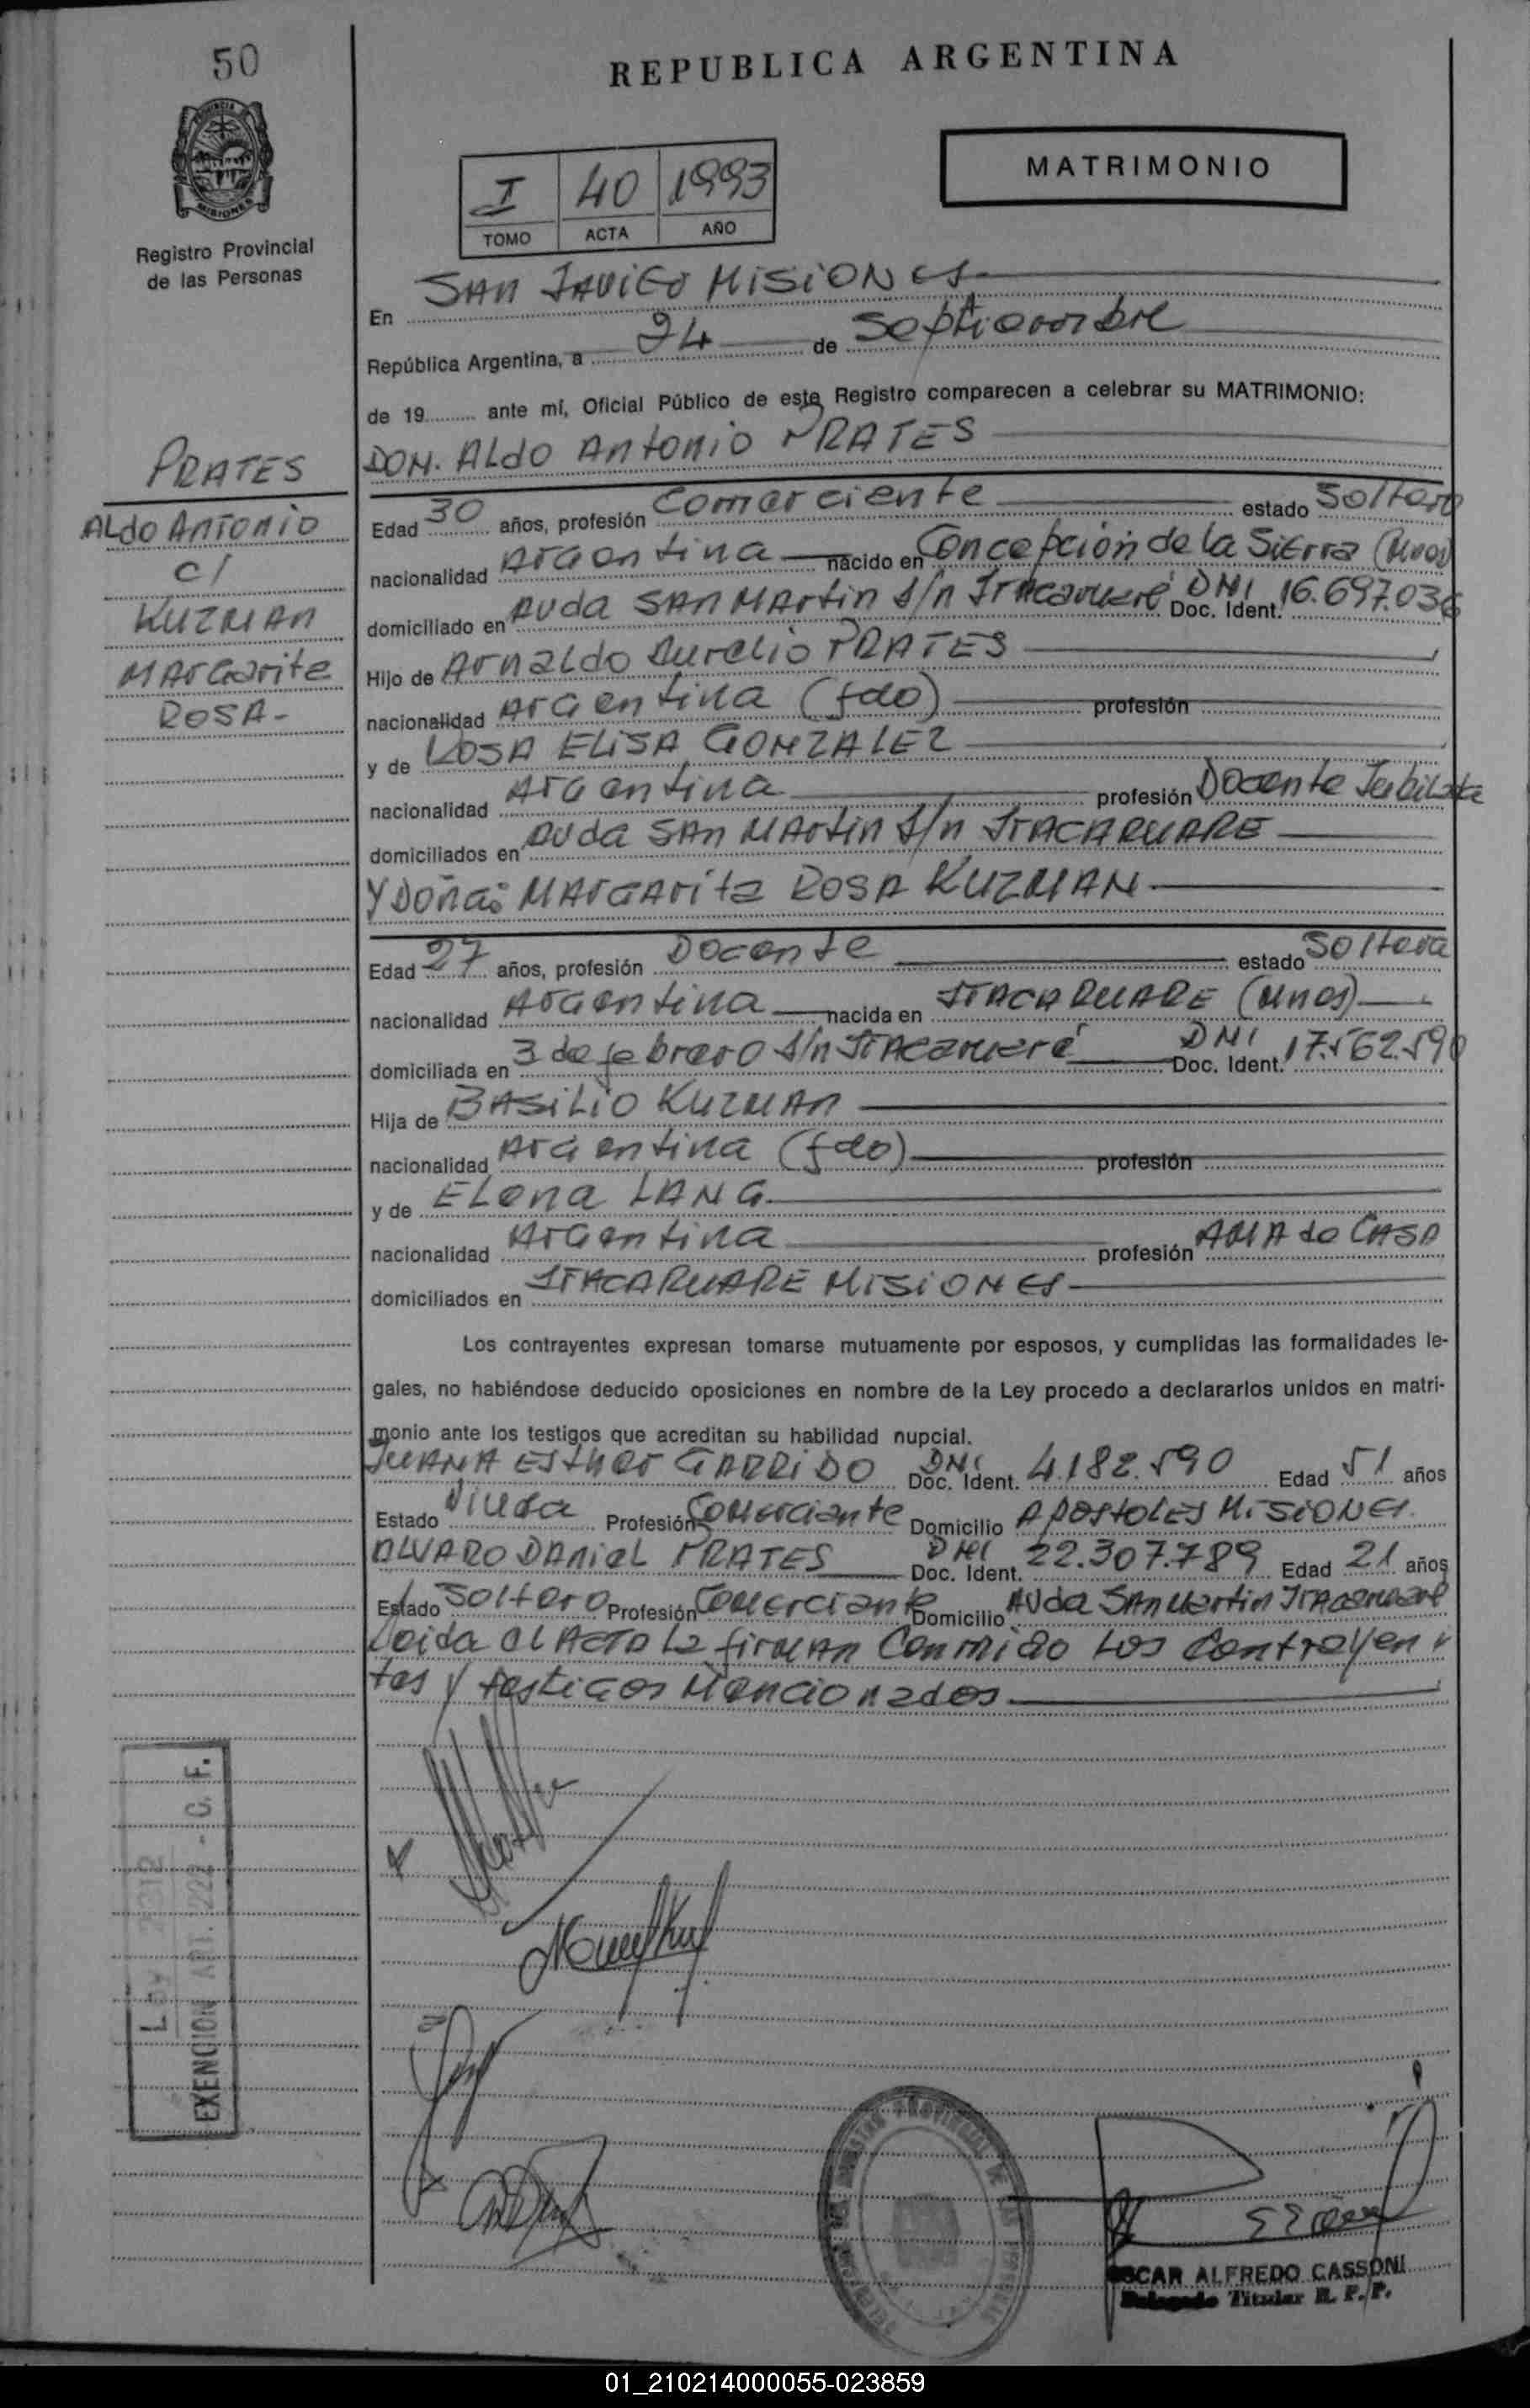 50
REPUBLICA ARGENTINA
PROVINCIA
MISIONES
Registro Provincial
de las Personas
I 40 1993
TOMO ACTA AÑO
MATRIMONIO
En SAN JAVIER MISIONES
República Argentina, a 24 de Septiembre
de 19 ante mí, Oficial Público de este Registro comparecen a celebrar su MATRIMONIO:
DON. ALdo Antonio PRATES
PRATES
ALdo ANTONIO
c/
KUZMAN
MARGARITA
ROSA-
Edad 30 años, profesión Comerciante estado Soltero
nacionalidad Argentina nacido en Concepción de la Sierra (Mnes)
domiciliado en Avda SAN MArtin S/n Itacaruaré DNI Doc. Ident. 16.697.036
Hijo de Arnaldo Aurelio PRATES
nacionalidad Argentina (fdo) profesión
y de ROSA ELISA GONZALEZ
nacionalidad Argentina profesión Docente Jubilada
domiciliados en Avda SAN MArtin S/n ITACARUARE
Y DOÑA: MARGARita ROSA KUZMAN
Edad 27 años, profesión Docente estado Soltera
nacionalidad Argentina nacida en ITACARUARE (Mnes)
domiciliada en 3 de febrero S/n Itacaruaré DNI Doc. Ident. 17.562.590
Hija de BASILIO KUZMAN
nacionalidad Argentina (fdo) profesión
y de ELena LANG
nacionalidad Argentina profesión AMA de CASA
domiciliados en ITACARUARE MISIONES
Los contrayentes expresan tomarse mutuamente por esposos, y cumplidas las formalidades le-
gales, no habiéndose deducido oposiciones en nombre de la Ley procedo a declararlos unidos en matri-
monio ante los testigos que acreditan su habilidad nupcial.
JUANA ESther GARRIDO DNI Doc. Ident. 4.182.590 Edad 51 años
Estado Viuda Profesión Comerciante Domicilio APOSTOLES MISIONES.
ALVARO DANIEL PRATES DNI Doc. Ident. 22.307.789 Edad 21 años
Estado Soltero Profesión Comerciante Domicilio Avda SAN Martin Itacaruare
Leida el ACTA La firman Conmigo Los Contrayen
tes y testigos Mencionados
Ley
EXENCION ART. 222 - C. F.
OSCAR ALFREDO CASSONI
Delegado Titular R. P. P.
01_210214000055-023859